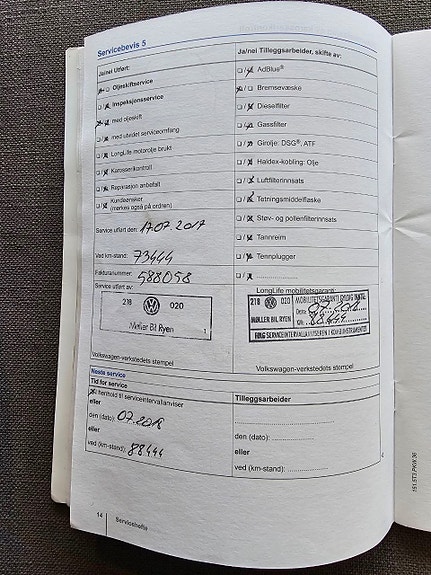 Servicebevis 5
Ja/nei Utført:
Oljeskiftservice
Inspeksjonsservice
med oljeskift
med utvidet serviceomfang
LongLife motorolje brukt
Karosserikontroll
Reparasjon anbefalt
Kundeønsker
(merkes også på ordren)
Service utført den: 17.07.2017
Ved km-stand: 73444
Fakturanummer: 588058
Service utført av:
218 020
Møller Bil Ryen
1
Volkswagen-verkstedets stempel
Ja/nei Tilleggsarbeider, skifte av:
AdBlue®
Bremsevæske
Dieselfilter
Gassfilter
Girolje: DSG®, ATF
Haldex-kobling: Olje
Luftfilterinnsats
Tetningsmiddelflaske
Støv- og pollenfilterinnsats
Tannreim
Tennplugger
LongLife mobilitetsgaranti
218 020 MOBILITETSGARANTI GYLDIG INNTIL
Dato: 07.2018
MØLLER BIL RYEN Km: 88444
Volkswagen-verkstedets stempel
Neste service
Tid for service
I henhold til serviceintervallanviser
eller
den (dato): 07.2018
eller
ved (km-stand): 88444
Tilleggsarbeider
den (dato):
eller
ved (km-stand):
14 Servicehefte
151.5T3.PKW.36